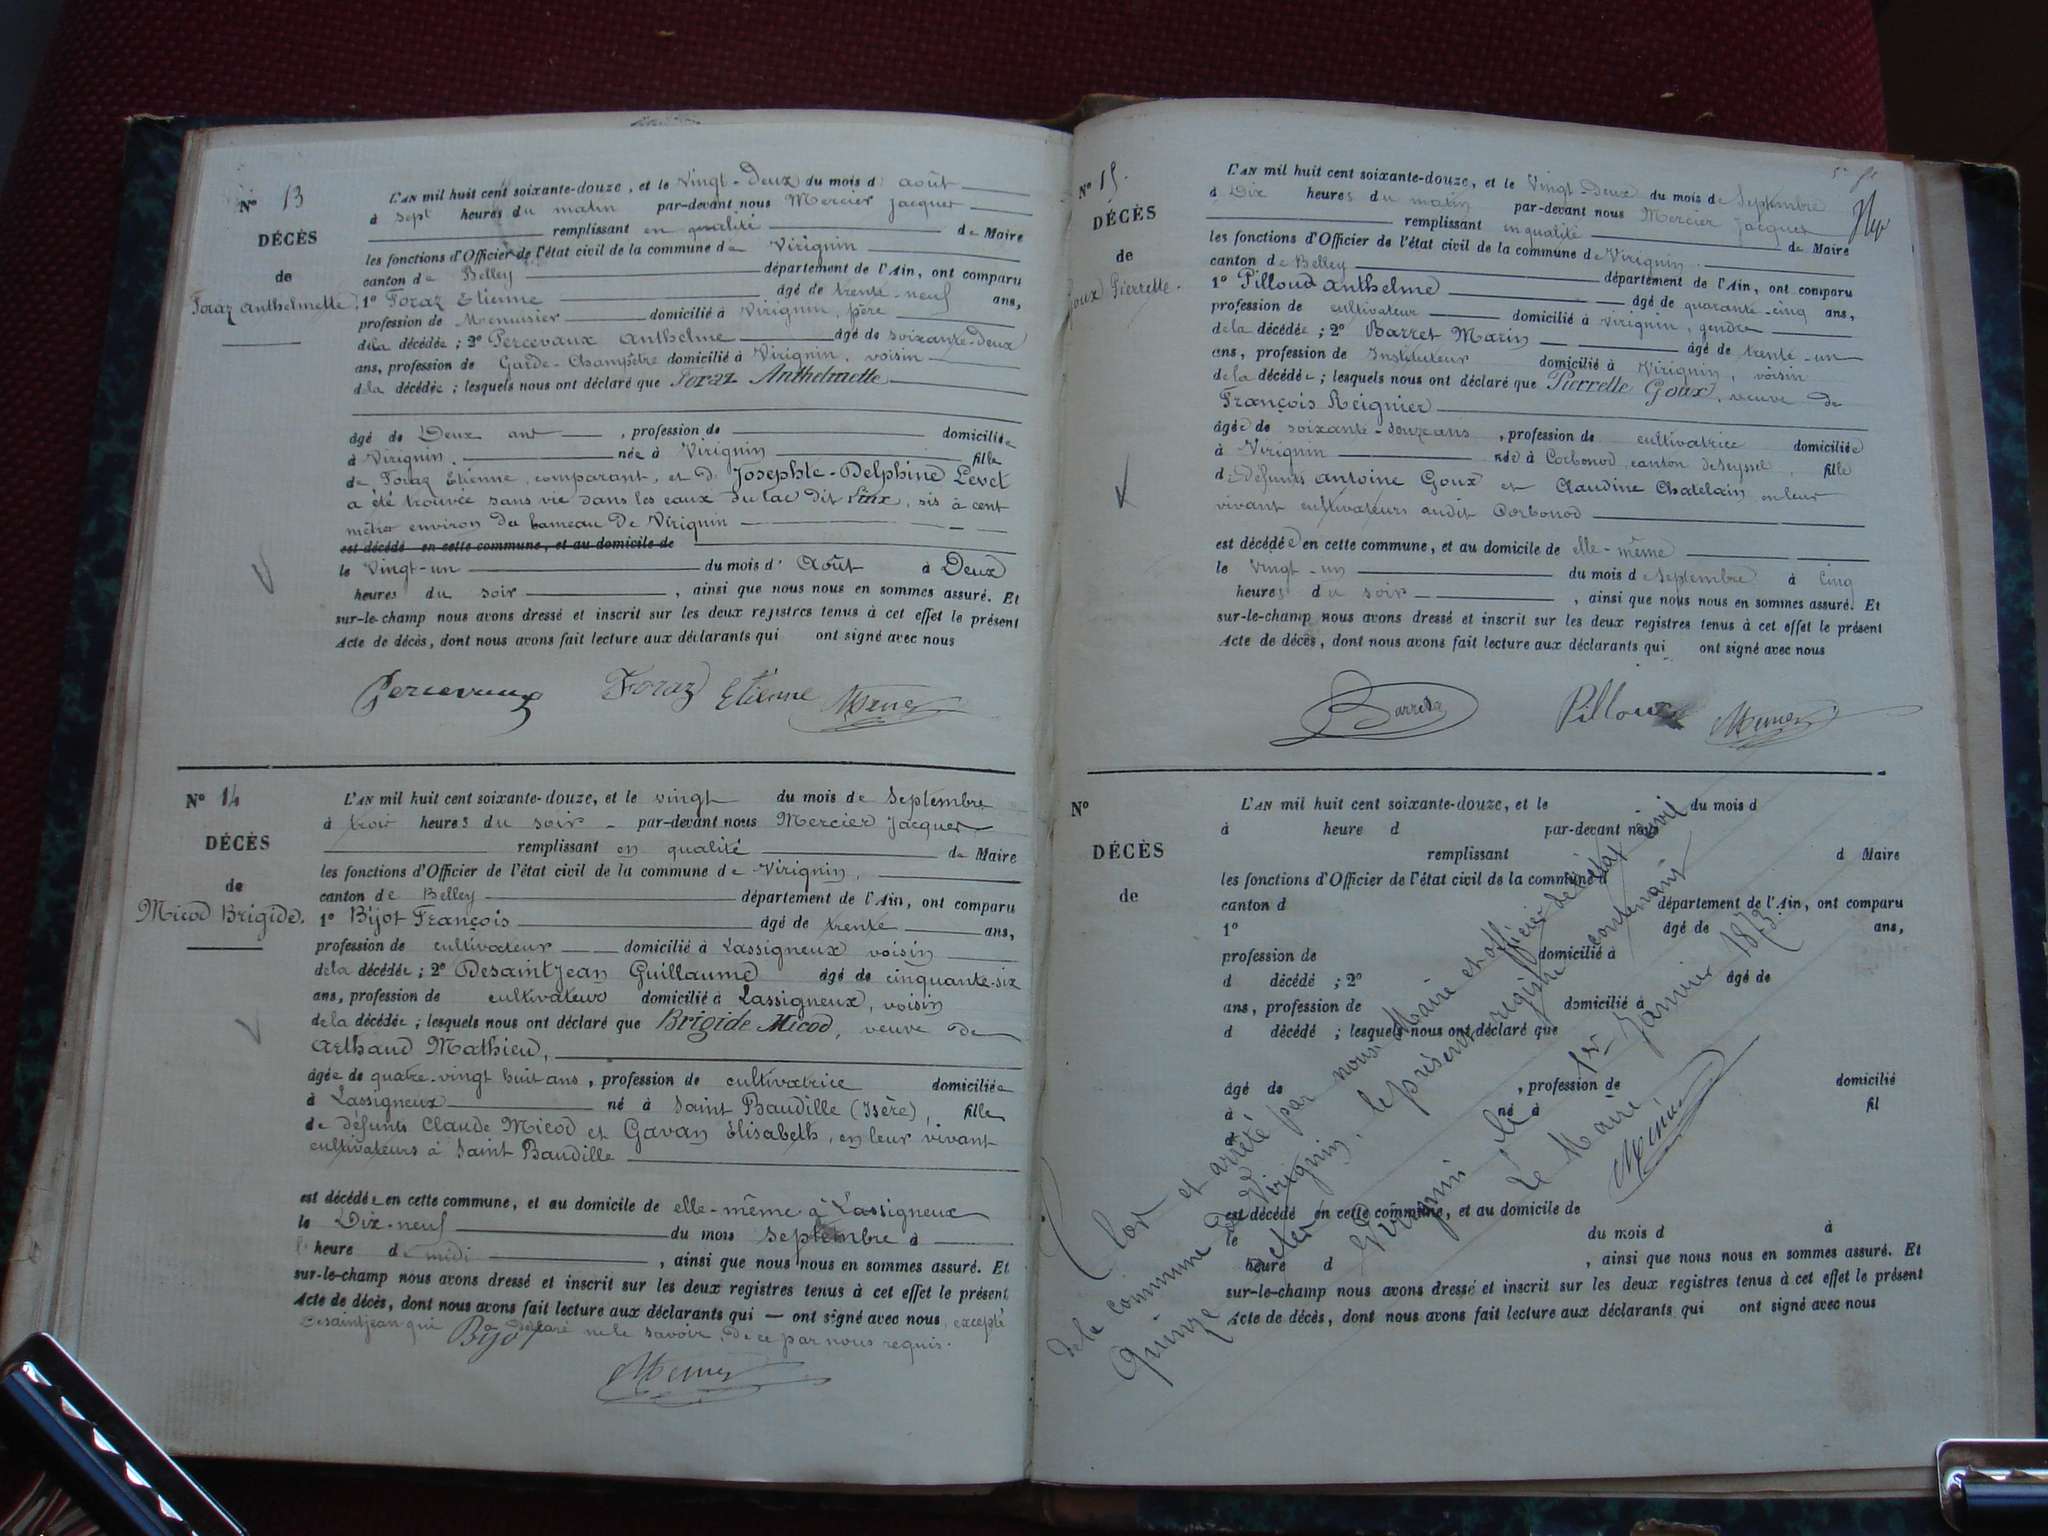 N° 13
DÉCÈS
de
Foraz Anthelmette.
L'AN mil huit cent soixante-douze, et le Vingt-Deux du mois d' août
à sept heures du matin par-devant nous Mercier Jacques
remplissant en qualité de Maire
les fonctions d'Officier de l'état civil de la commune de Virignin
canton de Belley département de l'Ain, ont comparu
1° Foraz Etienne âgé de trente-neuf ans,
profession de Menuisier domicilié à Virignin, père
de la décédée ; 2° Percevaux Anthelme âgé de soixante-deux
ans, profession de Garde-Champêtre domicilié à Virignin, voisin
de la décédée ; lesquels nous ont déclaré que Foraz Anthelmette
âgé de Deux ans, profession de domiciliée
à Virignin née à Virignin fille
de Foraz Etienne, comparant, et d Josephte-Delphine Levet
a été trouvée sans vie dans les eaux du lac dit , sis à cent
mètres environ du hameau de Virignin
est décédé en cette commune, et au domicile de
le Vingt-un du mois d' Août à Deux
heures du soir, ainsi que nous nous en sommes assuré. Et
sur-le-champ nous avons dressé et inscrit sur les deux registres tenus à cet effet le présent
Acte de décès, dont nous avons fait lecture aux déclarants qui ont signé avec nous
Percevaux Foraz Etienne Mercier
N° 14
DÉCÈS
de
Micod Brigide.
L'AN mil huit cent soixante-douze, et le vingt du mois de Septembre
à trois heures du soir - par-devant nous Mercier Jacques
remplissant en qualité de Maire
les fonctions d'Officier de l'état civil de la commune de Virignin,
canton de Belley département de l'Ain, ont comparu
1° Bijot François âgé de trente ans,
profession de cultivateur domicilié à Lassigneux voisin
de la décédée ; 2° Desaintjean Guillaume âgé de cinquante-six
ans, profession de cultivateur domicilié à Lassigneux, voisin
de la décédée ; lesquels nous ont déclaré que Brigide Micod, veuve de
Arthaud Mathieu,
âgée de quatre-vingt huit ans, profession de cultivatrice domiciliée
à Lassigneux né à Saint Baudille (Isère), fille
de défunts Claude Micod et Gavan Elisabeth, en leur vivant
cultivateurs à Saint Baudille
est décédée en cette commune, et au domicile de elle-même à Lassigneux
le Dix-neuf du mois Septembre à
heure de midi, ainsi que nous nous en sommes assuré. Et
sur-le-champ nous avons dressé et inscrit sur les deux registres tenus à cet effet le présent
Acte de décès, dont nous avons fait lecture aux déclarants qui — ont signé avec nous, excepté
Desaintjean qui a déclaré ne le savoir, de ce par nous requis.
Bijot
Mercier
N° 15.
DÉCÈS
de
Goux Pierrette.
L'AN mil huit cent soixante-douze, et le Vingt-Deux du mois de Septembre
à Dix heures du matin par-devant nous Mercier Jacques
remplissant en qualité de Maire
les fonctions d'Officier de l'état civil de la commune de Virignin
canton de Belley département de l'Ain, ont comparu
1° Pilloud Anthelme âgé de quarante-cinq ans,
profession de cultivateur domicilié à Virignin, gendre
de la décédée ; 2° Barret Marin âgé de trente-un
ans, profession de Instituteur domicilié à Virignin, voisin
de la décédée ; lesquels nous ont déclaré que Pierrette Goux, veuve de
François Reignier
âgée de soixante-douze ans, profession de cultivatrice domiciliée
à Virignin née à Corbonod, canton de Seyssel, fille
de défunts Antoine Goux et Claudine Chatelain, en leur
vivant cultivateurs audit Corbonod
est décédée en cette commune, et au domicile de elle-même
le Vingt-un du mois de Septembre à Cinq
heures du soir, ainsi que nous nous en sommes assuré. Et
sur-le-champ nous avons dressé et inscrit sur les deux registres tenus à cet effet le présent
Acte de décès, dont nous avons fait lecture aux déclarants qui ont signé avec nous
Barret Pilloud Mercier
N°
DÉCÈS
de
L'AN mil huit cent soixante-douze, et le du mois d
à heure d par-devant nous
remplissant d Maire
les fonctions d'Officier de l'état civil de la commune d
canton d département de l'Ain, ont comparu
1° âgé de ans,
profession de domicilié à
d décédé ; 2° âgé de
ans, profession de domicilié à
d décédé ; lesquels nous ont déclaré que
âgé de , profession de domicilié
à né à fil
d
est décédé en cette commune, et au domicile de
le du mois d à
heure d , ainsi que nous nous en sommes assuré. Et
sur-le-champ nous avons dressé et inscrit sur les deux registres tenus à cet effet le présent
Acte de décès, dont nous avons fait lecture aux déclarants qui ont signé avec nous
Clos et arrêté par nous Maire et officier de l'état civil
de la commune de Virignin, le présent registre contenant
Quinze actes
Virignin le 1er Janvier 1873.
Le Maire,
Mercier